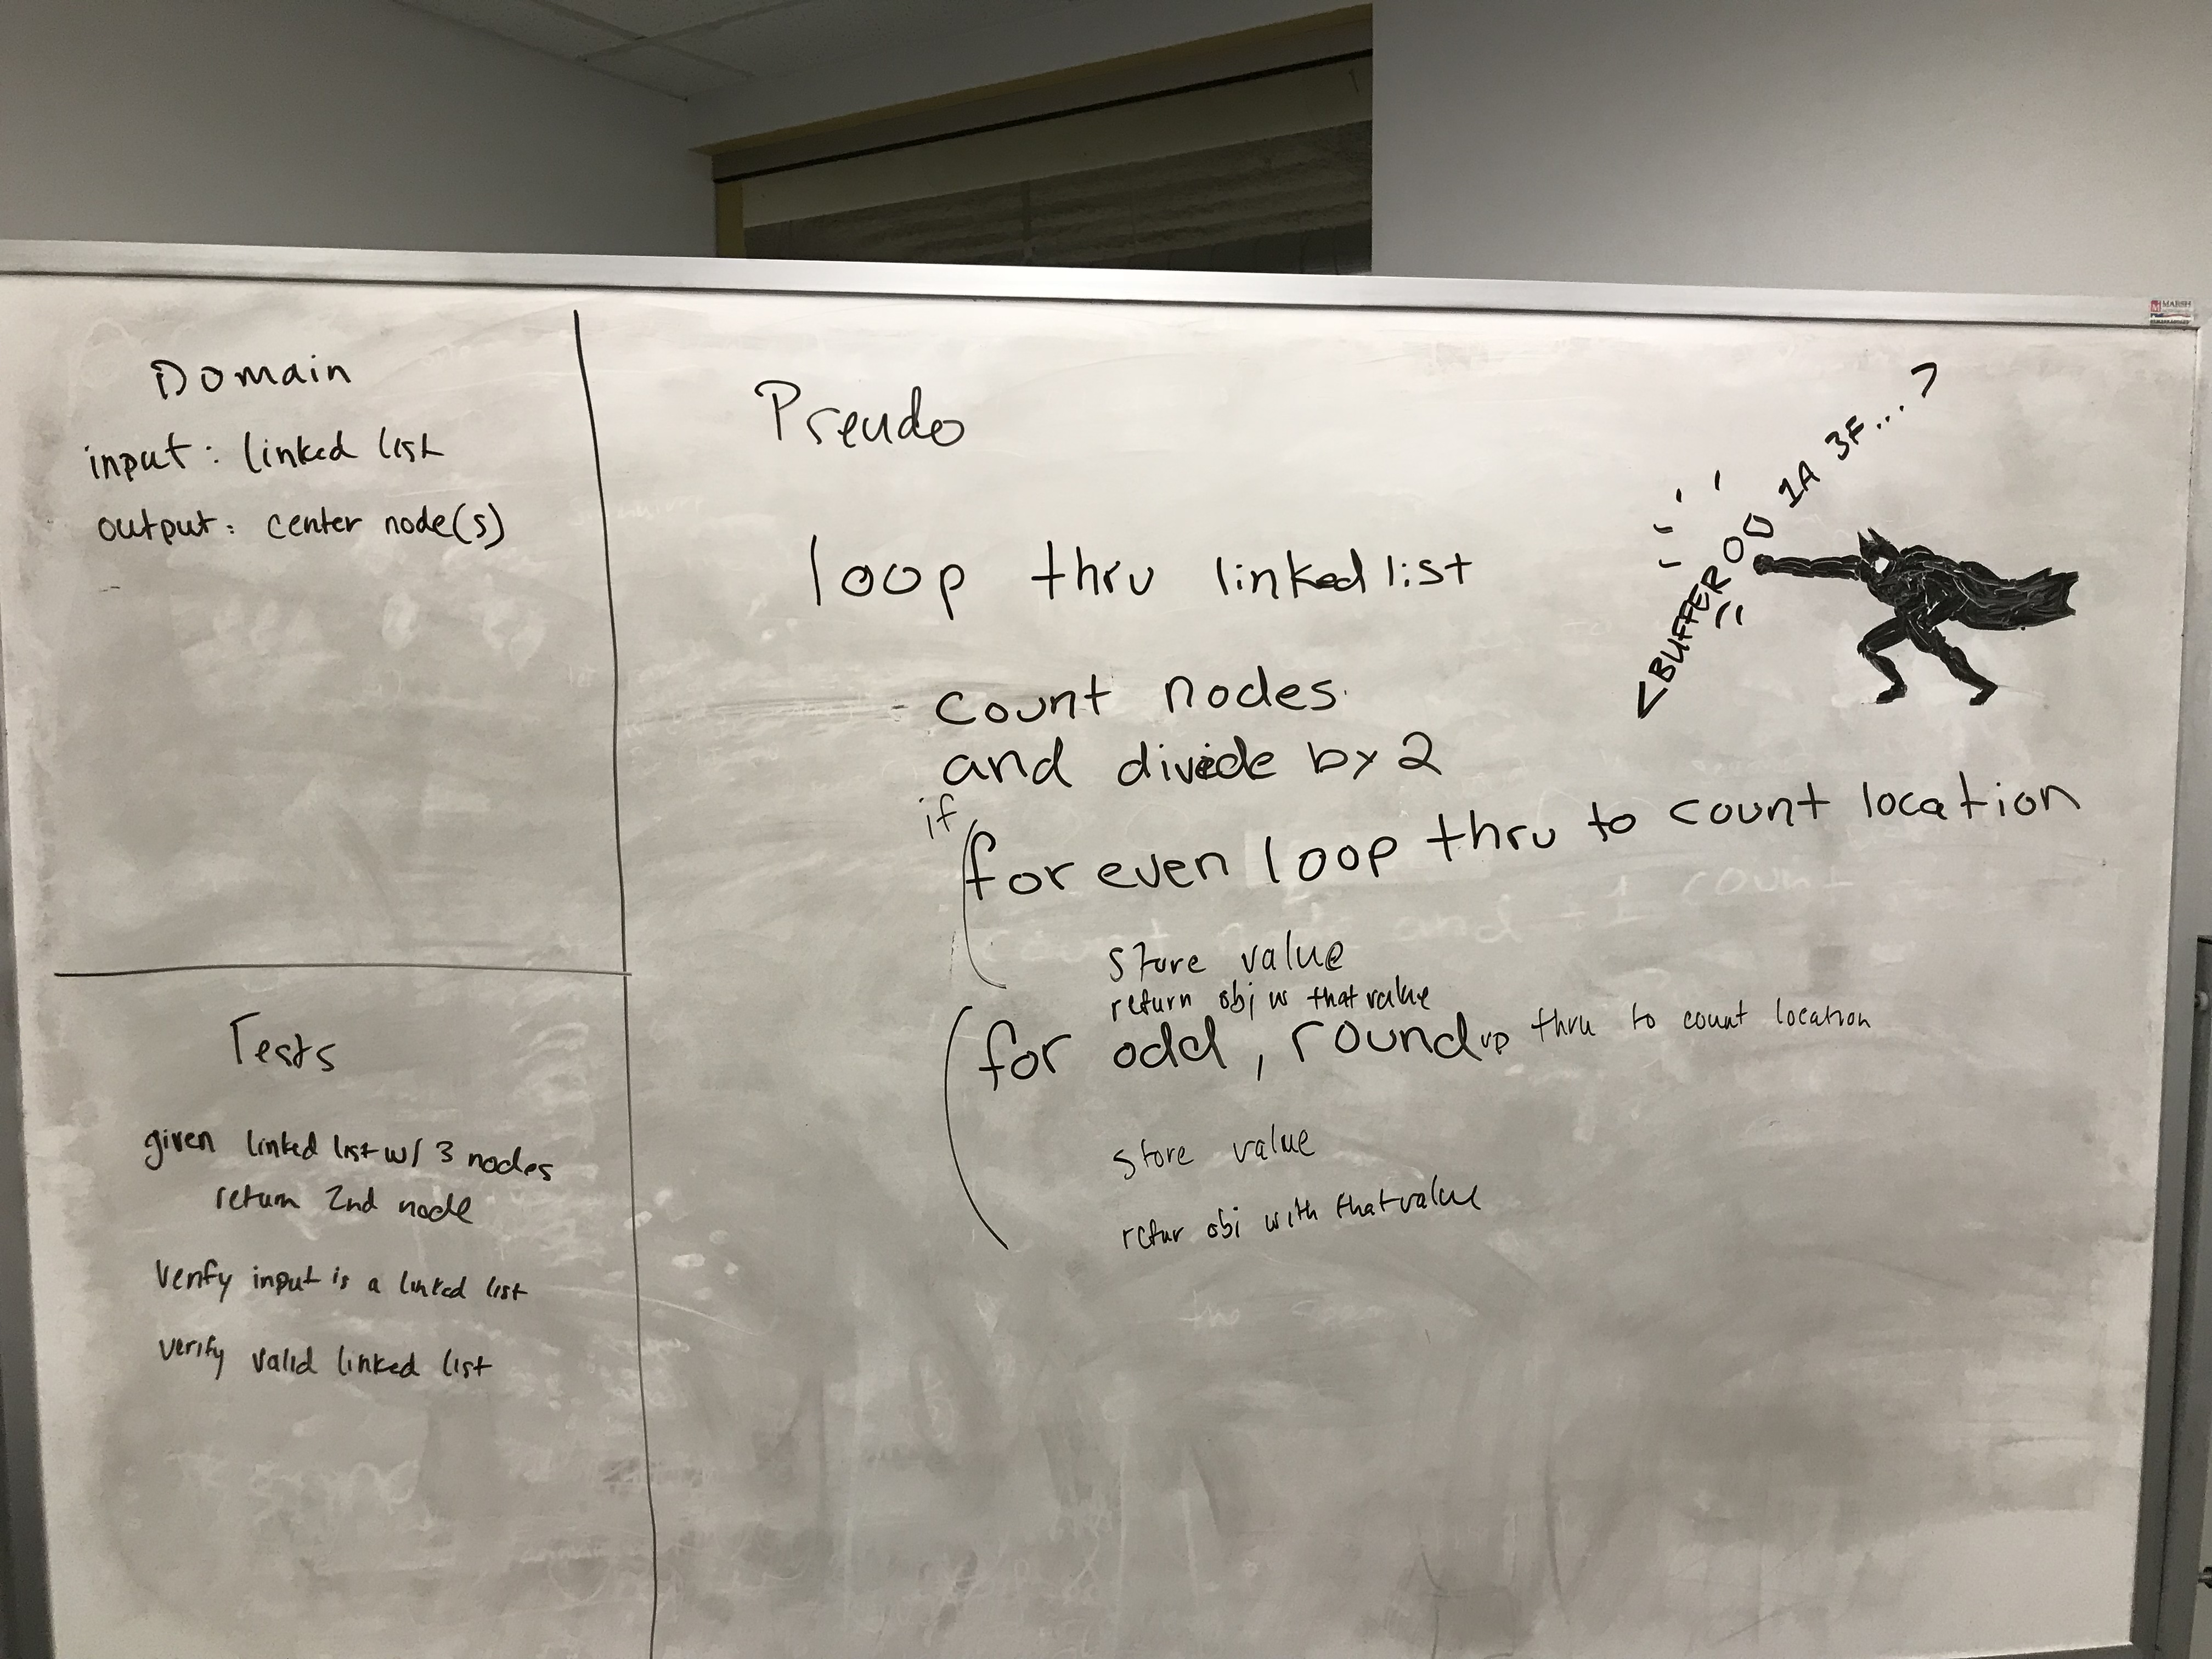 Domain
input: linked list
output: center node(s)
Tests
given linked list w/ 3 nodes
return 2nd node
Verify input is a linked list
verify valid linked list
Pseudo
loop thru linked list
count nodes
and divide by 2
if
for even loop thru to count location
store value
return obj w that value
for odd, round up thru to count location
store value
retur obj with that value
<BUFFER 00 1A 3F...>
MARSH